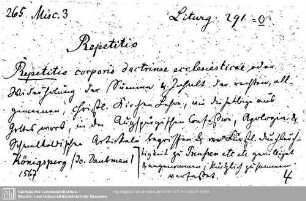 265. Misc. 3
Liturg. 291 = 0
Repetitio
Repetitio corporis doctrinae ecclesiasticae oder
Widerholung der Summa u. Inhalt der rechten, all-
gemeinen, Christl. Kirchen Lehre, wie dieselbige aus
Gottes wort, in der Augspurgischen Confession, Apologia, &
Schmalkaldischen Artikeln begriffen & von Fürstl. Durchlauch-
tigkeit zu Preussen etc.
Königsperg / Jo. Daubman /
& angenommen, kürtzlich zusammen
1567
verfasset.
4
Sächsische Landesbibliothek -
Staats- und Universitätsbibliothek Dresden